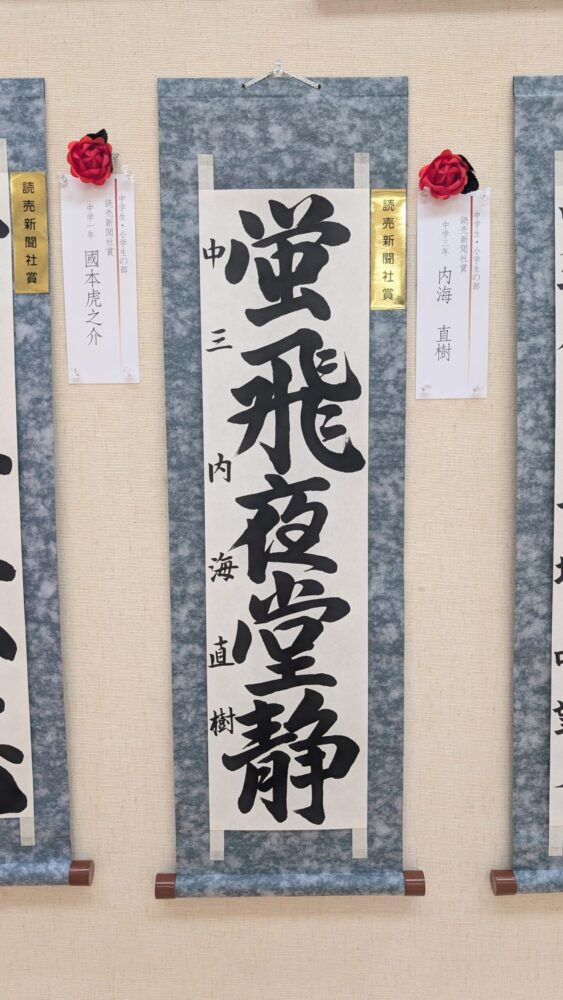 蛍飛夜堂静
中三 内海直樹
読売新聞社賞
中学生・小学生の部
読売新聞社賞
中学三年 内海 直樹
読売新聞社賞
中学生・小学生の部
読売新聞社賞
中学一年 國本虎之介